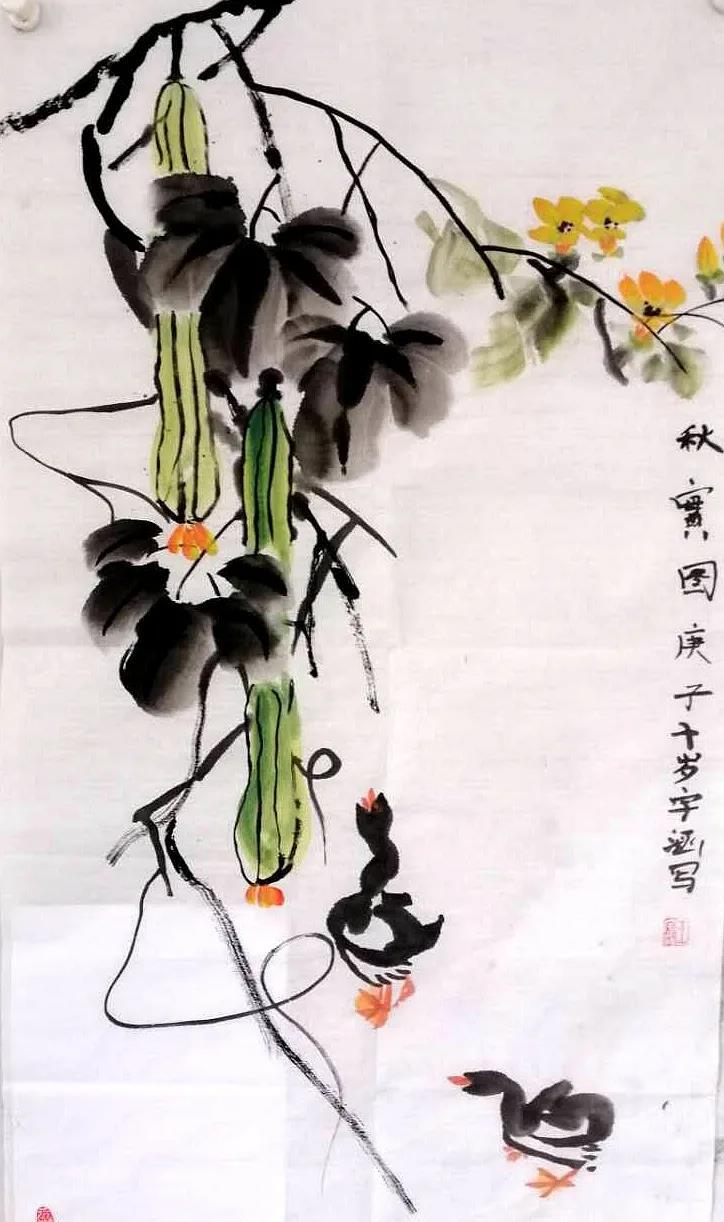 秋實图庚子十岁宇涵写